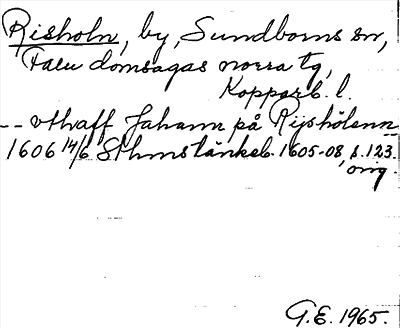 Risholn, by, Sundborns sn,
Falu domsagas norra tg,
Kopparb. l.
-- vthaff Jahann på Rijshölenn
1606 14/6 Sthmstänkeb. 1605-08, s. 123.
orig.
G.E. 1965.